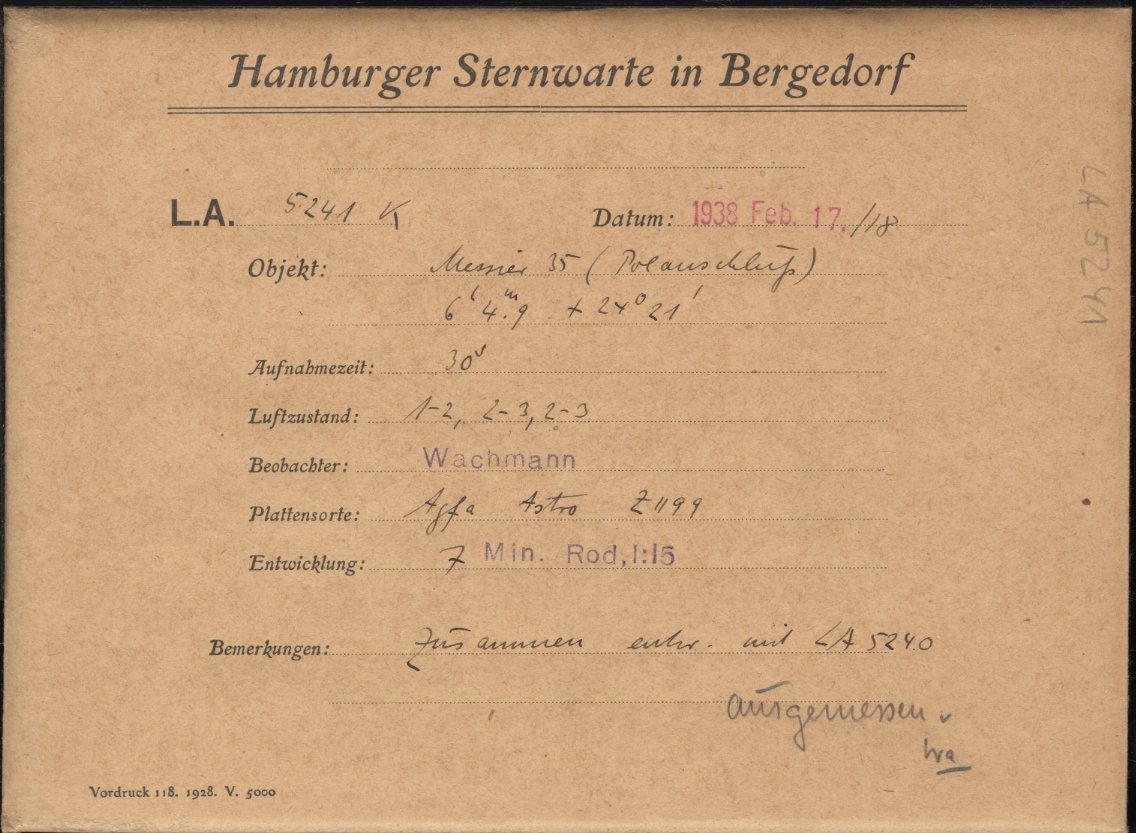 Hamburger Sternwarte in Bergedorf
L.A. 5241 K Datum: 1938 Feb. 17./18
Objekt: Messier 35 (Polanschluß)
6ʰ 4ᵐ.9 + 24° 21'
Aufnahmezeit: 30
Luftzustand: 1-2, 2-3, 2-3
Beobachter: Wachmann
Plattensorte: Agfa Astro Z 1199
Entwicklung: 7 Min. Rod, 1:15
Bemerkungen: Zusammen entw. mit LA 5240
ausgemessen
Wa
Vordruck 118. 1928. V. 5000
LA 5241